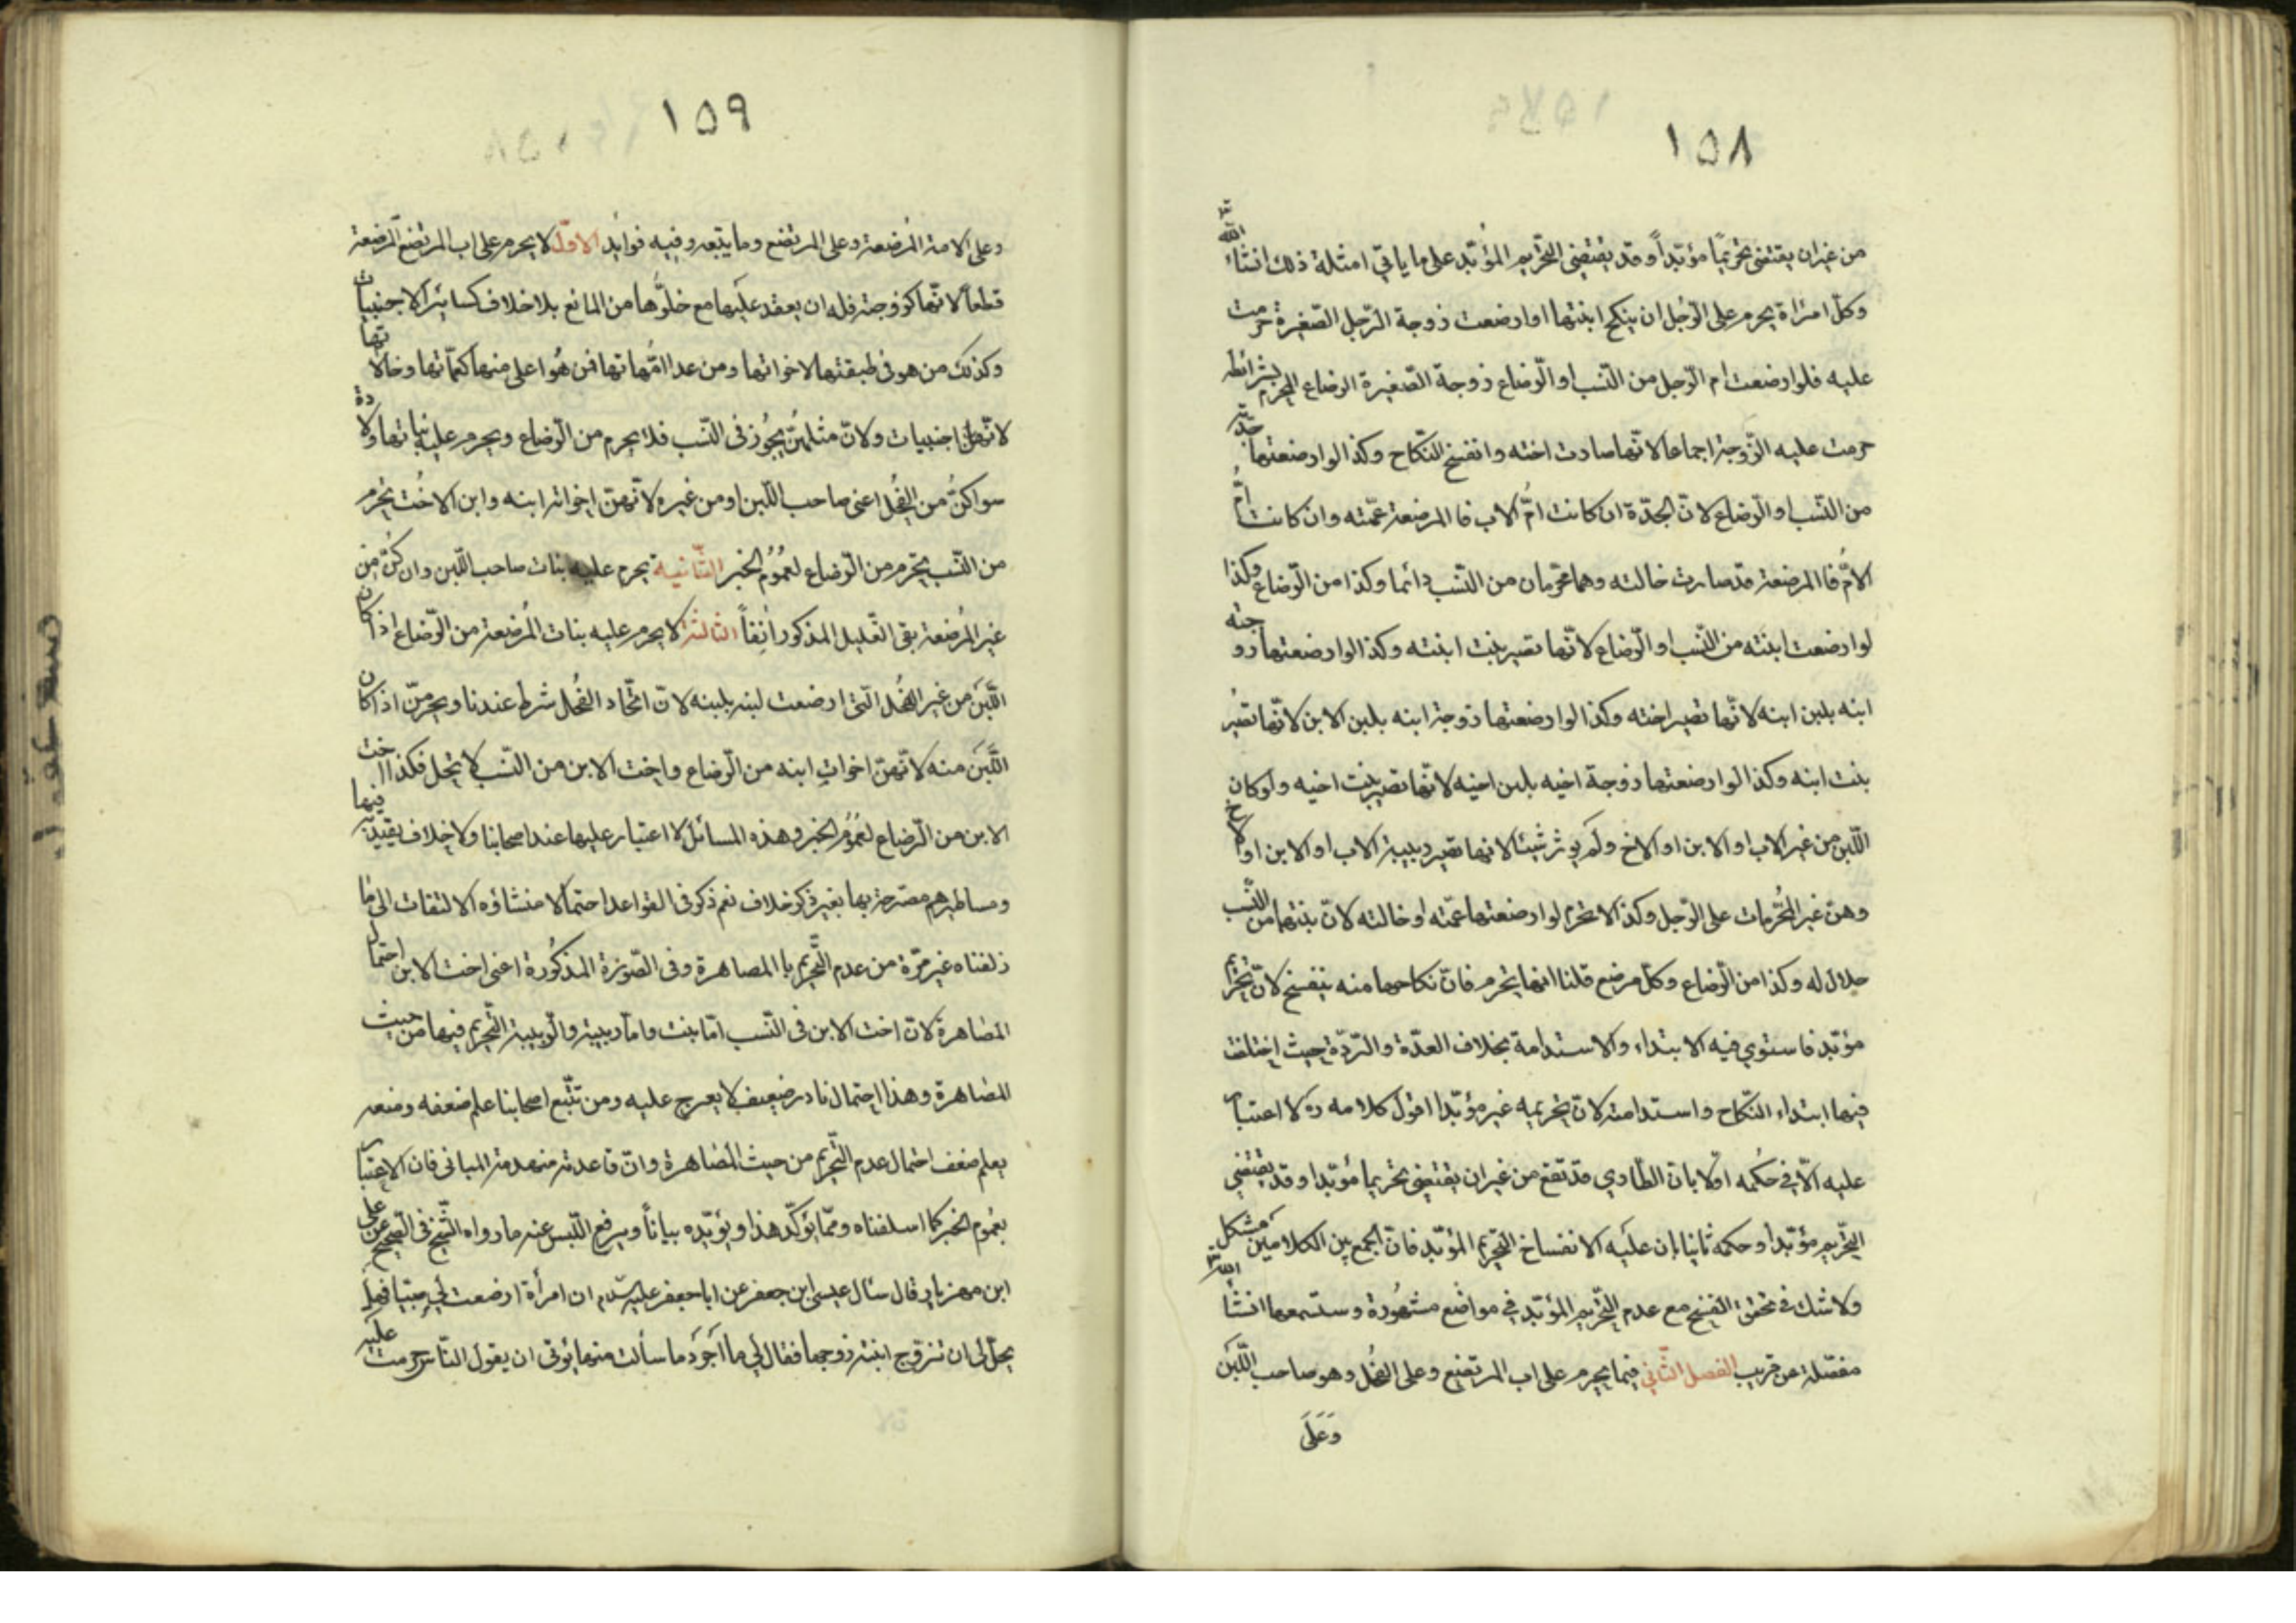 ١٥٨
من غير ان يقتضى تحريمًا مؤبّداً وقد يقتضى التّحريم المؤبّد على ما ياتي امثلة ذلك انشاء اللّه تع
وكلّ امراة يحرم على الرّجل ان ينكح ابنتها اوارضعت زوجة الرّجل الصّغيرة حرمت
عليه فلوارضعت ام الرّجل من النّسب او الرّضاع زوجة الصّغيرة الرضاع المحرم بشرائطه
حرمت عليه الزّوجة اجماعا لانّها صارت اخته وانفسخ النّكاح وكذا لوارضعتها جدّته
من النّسب او الرّضاع لانّ الجدّة ان كانت امّ الاب فالمرضعة عمّته وان كانت امّ
الامّ فالمرضعة قد صارت خالته وهما محرّمان من النّسب دائما وكذا من الرّضاع وكذا
لوارضعت ابنته من النّسب او الرّضاع لانّها تصير بنت ابنته وكذا لوارضعتها زوجة
ابنه بلبن ابنه لانّها تصير اخته وكذا لوارضعتها زوجة ابنه بلبن الابن لانّها تصير
بنت ابنه وكذا لوارضعتها زوجة اخيه بلبن اخيه لانّها تصير بنت اخيه ولوكان
اللّبن من غير الاب او الابن او الاخ ولم يوثر شيئا لانها تصير ربيبة الاب او الابن او الاخ
وهنّ غير المحُرّمات على الرّجل وكذا لا تحرم لوارضعتها عمّته او خالته لانّ بنتها من النّسب
حلال له وكذا من الرّضاع وكلّ مرضع قلنا انها يحرم فانّ نكاحها منه ينفسخ لانّ تحريم
مؤبّد فاستوي فيه الابتداء والاستدامة بخلاف العدّة والرّدّة حيث اختلفت
فيها ابتداء النّكاح واستدامته لانّ تحريمه غير مؤبّدا اقول كلامه ره لا اعتبار
عليه الّا في حكُمه اوّلا بانّ الطّاري قد تقع من غير ان يقتضى تحريما مؤبّدا وقد يقتضي
التّحريم مؤبّدا وحكمه ثانيا بان عليه الانفساخ التّحريم المؤبّد فانّ الجمع بين الكلامين مشكل
ولا شك في تحقق الفسخ مع عدم التّحريم المؤبّد في مواضع مشهُورة وستسمعها انشأ اللّه تع
مفصّلة عن قريب الفصل الثّاني فيما يحرم على اب المرتضع وعلى الفحُل وهو صاحب اللّبَن
وَعَلَى
١٥٩
وعلى الامة المُرضعة وعلى المرتضع وما يتبعه وفيه فوايُد الاوّل لا يحرم على اب المرتضع المرضعة
قطعاً لانّها كزوجته فله ان يعقد عليها مع خلوُّها من المانع بلا خلاف كسايُر الاجنبيات
وكذلك من هو في طبقتها لاخواتها ومن عدا امّهاتها فمن هُوا على منها كعمّاتها وخالاتها
لانّهنّ اجنبيات ولانّ مثلهنّ يجُوز في النّسب فلا يحرم من الرّضاع ويحرم عليه بناتها ولادة
سواكنّ من الفحُل اعنى صاحب اللّبن او من غيره لانّهنّ اخواته ابنه وابن الاخُت يحرم
من النّسب يحرم من الرّضاع لعمُوُم الخبر الثّانية يحرم عليه بنات صاحب اللّبن وان كُنّ من
غير المُرضعة بقى التّعليل المذكور آنِفاً الثالثة لا يحرم عليه بنات المُرضعة من الرّضاع اذاكان
اللّبَن من غير الفحُل الّتى ارضعت لبنه بلبنه لانّ اتّحاد الفحُل شرط عندنا ويحرمنّ اذاكان
اللّبَنَ منه لانّهنّ اخواتِ ابنه من الرّضاع واخت الابن من النّسب لا يحل فكذا اخت
الابن من الرّضاع لعمُوُم الخبر وهذه المسائل لا اعتبار عليها عند اصحابنا ولا خلاف يقيديّه فيها
ومساطيرهم مصّرحة بها بغير ذكر خلاف نعم ذكر في القواعد احتمالا منشاؤه الالتفات الى ما
زلفناه غير مرّة من عدم التّحريم با المصاهرة وفى الصّورة المذكُورة اعنى اخت الابن احتمال
المصاهرة لانّ اخت الابن في النّسب امّا بنت وامّا ربيبة والرّبيبة التّحريم فيها من حيث
المصاهرة وهذا احتمال نادر ضعيف لا يعرج عليه ومن تتّبع اصحابنا علم ضعفه ومنعه
يعلم ضعف احتمال عدم التّحريم من حيث المصاهرة وانّ قاعدته منهدمة المبانى فان الاعتبار
بعُموم الخبر كما اسلفناه وممّا يؤكّد هذا ويؤيّده بياناً ويرفع اللّبس عنه ما رواه الشّيخ في الصّحيح عن على
ابن مهزيار قال سُال عيسى ابن جعفر عن ابا جعفر عليه السّلام ان امرأة ارضعت لي صبيّا فهل
يحلّ لى ان تزوّج ابنة زوجها فقال لي ما اَجوَد ما سألت من هنا يُؤتى ان يقول النّاس حرمت عليه